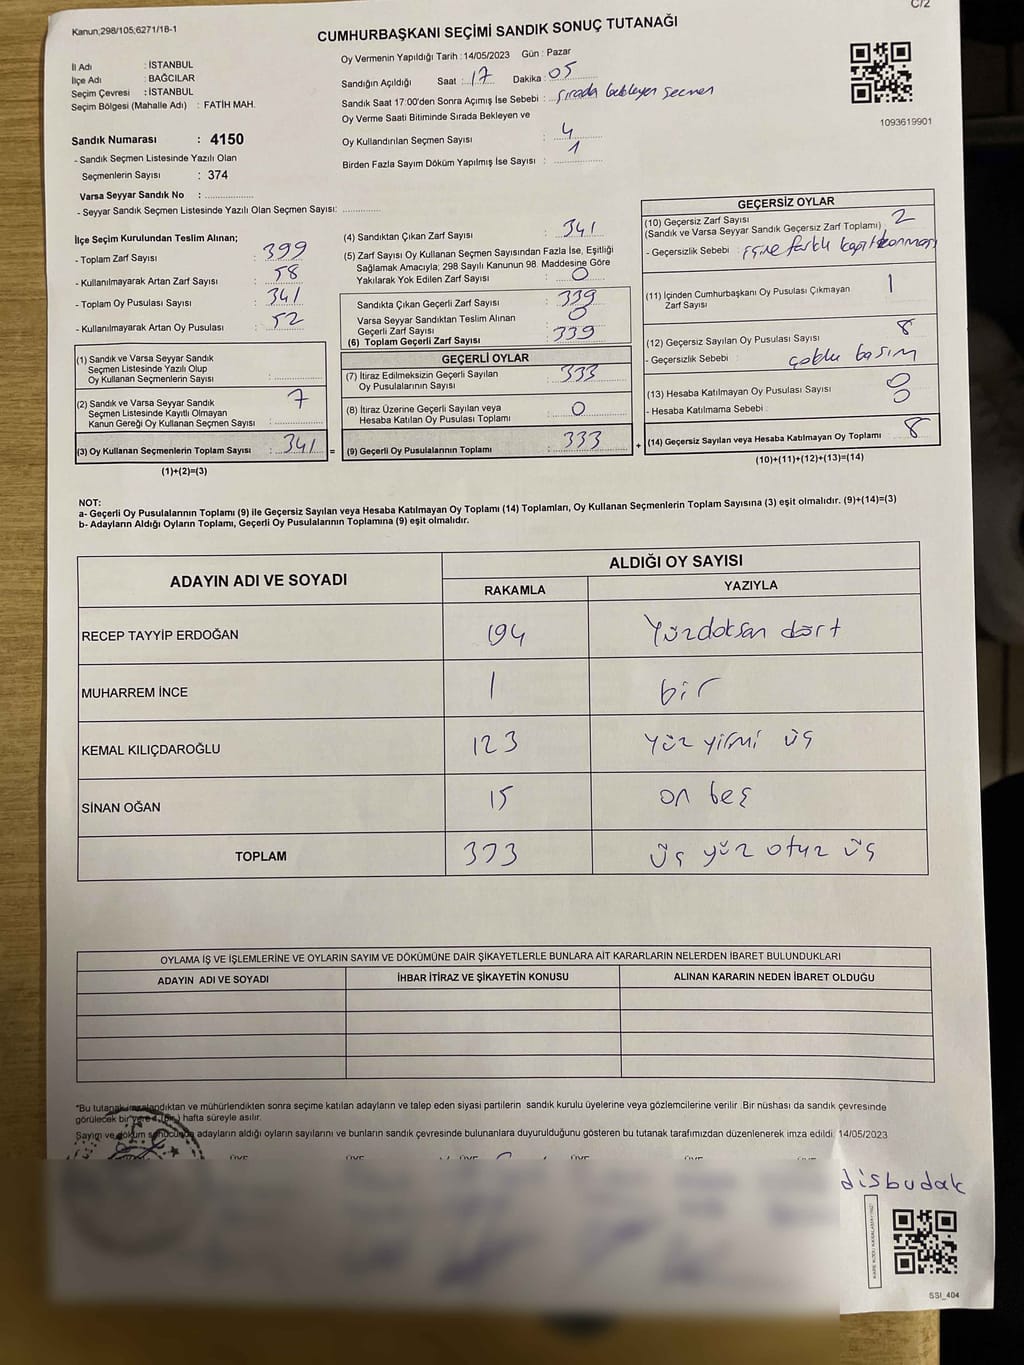 C/2
Kanun;298/105;6271/18-1
CUMHURBAŞKANI SEÇİMİ SANDIK SONUÇ TUTANAĞI
İl Adı : İSTANBUL
İlçe Adı : BAĞCILAR
Seçim Çevresi : İSTANBUL
Seçim Bölgesi (Mahalle Adı) : FATİH MAH.
Oy Vermenin Yapıldığı Tarih :14/05/2023 Gün : Pazar
Sandığın Açıldığı Saat : 17 Dakika : 05
Sandık Saat 17:00'den Sonra Açımış İse Sebebi : sırada bekleyen seçmen
Oy Verme Saati Bitiminde Sırada Bekleyen ve
Oy Kullandırılan Seçmen Sayısı : 4
Birden Fazla Sayım Döküm Yapılmış İse Sayısı : 1
1093619901
Sandık Numarası : 4150
- Sandık Seçmen Listesinde Yazılı Olan
Seçmenlerin Sayısı : 374
Varsa Seyyar Sandık No :
- Seyyar Sandık Seçmen Listesinde Yazılı Olan Seçmen Sayısı:
İlçe Seçim Kurulundan Teslim Alınan;
- Toplam Zarf Sayısı : 399
- Kullanılmayarak Artan Zarf Sayısı : 58
- Toplam Oy Pusulası Sayısı : 341
- Kullanılmayarak Artan Oy Pusulası : 52
(1) Sandık ve Varsa Seyyar Sandık
Seçmen Listesinde Yazılı Olup
Oy Kullanan Seçmenlerin Sayısı :
(2) Sandık ve Varsa Seyyar Sandık
Seçmen Listesinde Kayıtlı Olmayan
Kanun Gereği Oy Kullanan Seçmen Sayısı : 7
(3) Oy Kullanan Seçmenlerin Toplam Sayısı : 341
(1)+(2)=(3)
(4) Sandıktan Çıkan Zarf Sayısı : 341
(5) Zarf Sayısı Oy Kullanan Seçmen Sayısından Fazla İse, Eşitliği
Sağlamak Amacıyla; 298 Sayılı Kanunun 98. Maddesine Göre
Yakılarak Yok Edilen Zarf Sayısı : 0
Sandıkta Çıkan Geçerli Zarf Sayısı : 339
Varsa Seyyar Sandıktan Teslim Alınan
Geçerli Zarf Sayısı : 0
(6) Toplam Geçerli Zarf Sayısı : 339
GEÇERLİ OYLAR
(7) İtiraz Edilmeksizin Geçerli Sayılan
Oy Pusulalarının Sayısı : 333
(8) İtiraz Üzerine Geçerli Sayılan veya
Hesaba Katılan Oy Pusulası Toplamı : 0
(9) Geçerli Oy Pusulalarının Toplamı : 333
GEÇERSİZ OYLAR
(10) Geçersiz Zarf Sayısı
(Sandık ve Varsa Seyyar Sandık Geçersiz Zarf Toplamı) : 2
- Geçersizlik Sebebi : içine farklı
(11) İçinden Cumhurbaşkanı Oy Pusulası Çıkmayan
Zarf Sayısı : 1
(12) Geçersiz Sayılan Oy Pusulası Sayısı : 8
- Geçersizlik Sebebi : çoklu basım
(13) Hesaba Katılmayan Oy Pusulası Sayısı : 0
- Hesaba Katılmama Sebebi : 0
(14) Geçersiz Sayılan veya Hesaba Katılmayan Oy Toplamı : 8
(10)+(11)+(12)+(13)=(14)
NOT:
a- Geçerli Oy Pusulalarının Toplamı (9) ile Geçersiz Sayılan veya Hesaba Katılmayan Oy Toplamı (14) Toplamları, Oy Kullanan Seçmenlerin Toplam Sayısına (3) eşit olmalıdır. (9)+(14)=(3)
b- Adayların Aldığı Oyların Toplamı, Geçerli Oy Pusulalarının Toplamına (9) eşit olmalıdır.
ADAYIN ADI VE SOYADI
ALDIĞI OY SAYISI
RAKAMLA YAZIYLA
RECEP TAYYİP ERDOĞAN 194 Yüzdoksan dört
MUHARREM İNCE 1 bir
KEMAL KILIÇDAROĞLU 123 yüz yirmi üç
SİNAN OĞAN 15 on beş
TOPLAM 333 üç yüz otuz üç
OYLAMA İŞ VE İŞLEMLERİNE VE OYLARIN SAYIM VE DÖKÜMÜNE DAİR ŞİKAYETLERLE BUNLARA AİT KARARLARIN NELERDEN İBARET BULUNDUKLARI
ADAYIN ADI VE SOYADI İHBAR İTİRAZ VE ŞİKAYETİN KONUSU ALINAN KARARIN NEDEN İBARET OLDUĞU
*Bu tutanak imzalandıktan ve mühürlendikten sonra seçime katılan adayların ve talep eden siyasi partilerin sandık kurulu üyelerine veya gözlemcilerine verilir .Bir nüshası da sandık çevresinde
görülecek bir yere 1 (Bir) hafta süreyle asılır.
Sayım ve döküm sonucunda adayların aldığı oyların sayılarını ve bunların sandık çevresinde bulunanlara duyurulduğunu gösteren bu tutanak tarafımızdan düzenlenerek imza edildi. 14/05/2023
disbudak
SSI_404